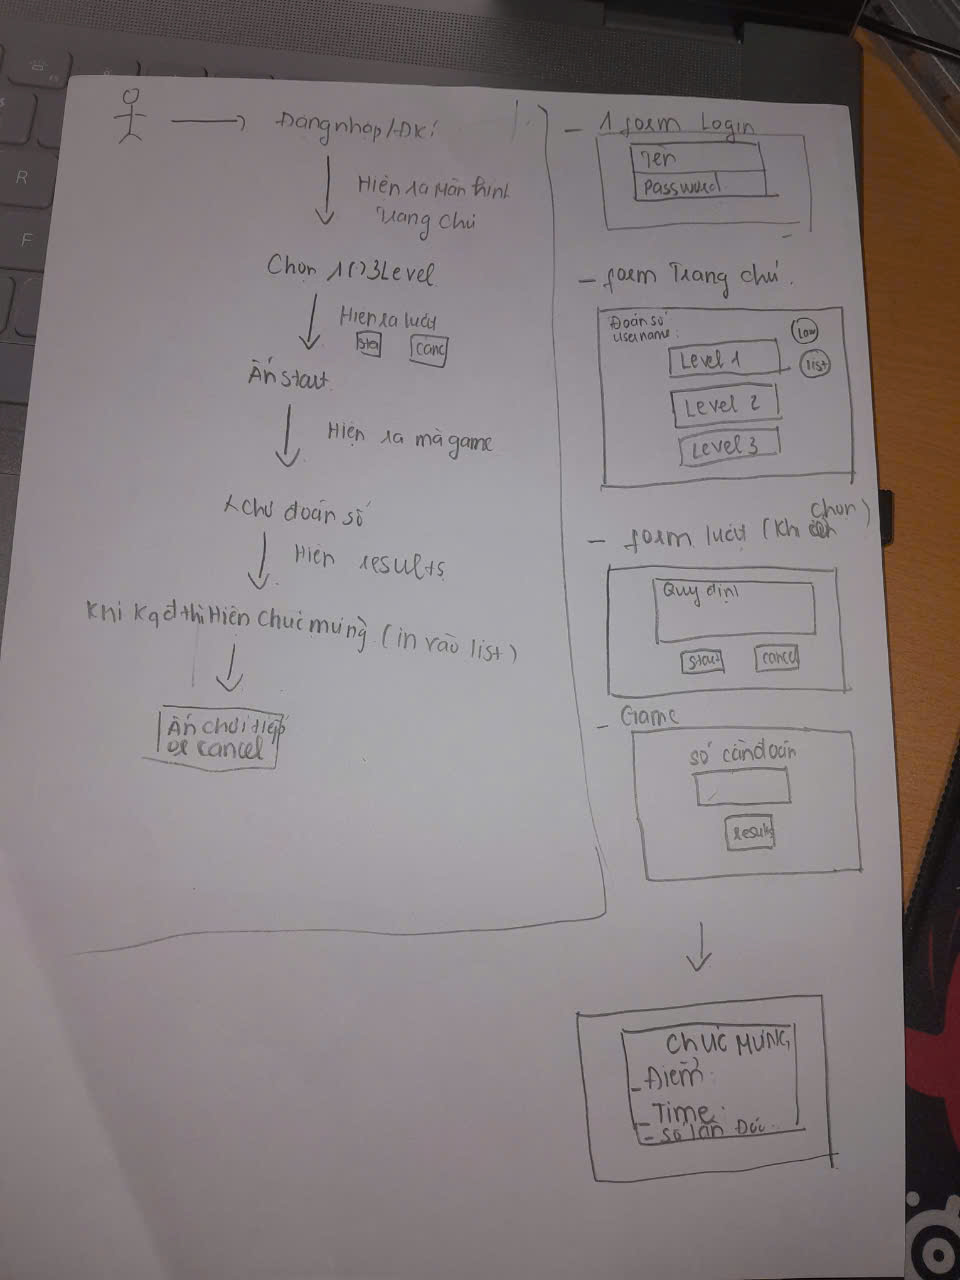 Đăng nhập/ĐKí
Hiện ra màn hình
Trang chủ
Chọn 1(.)3Level
Hiện ra luật
sta
canc
Ấn start
Hiện ra mà game
đoán số
Hiện results
Khi kq đ thì Hiện Chúc mừng (in vào list)
Ấn chơi tiếp
or cancel
- 1 form Login
Tên
Password
- form Trang chủ.
Đoán số
Username:
Level 1
list
Level 2
Level 3
- form luật (khi chọn)
Quy định
start
cancel
- Game
số cần đoán
results
CHÚC MỪNG
- Điểm:
- Time:
- số lần